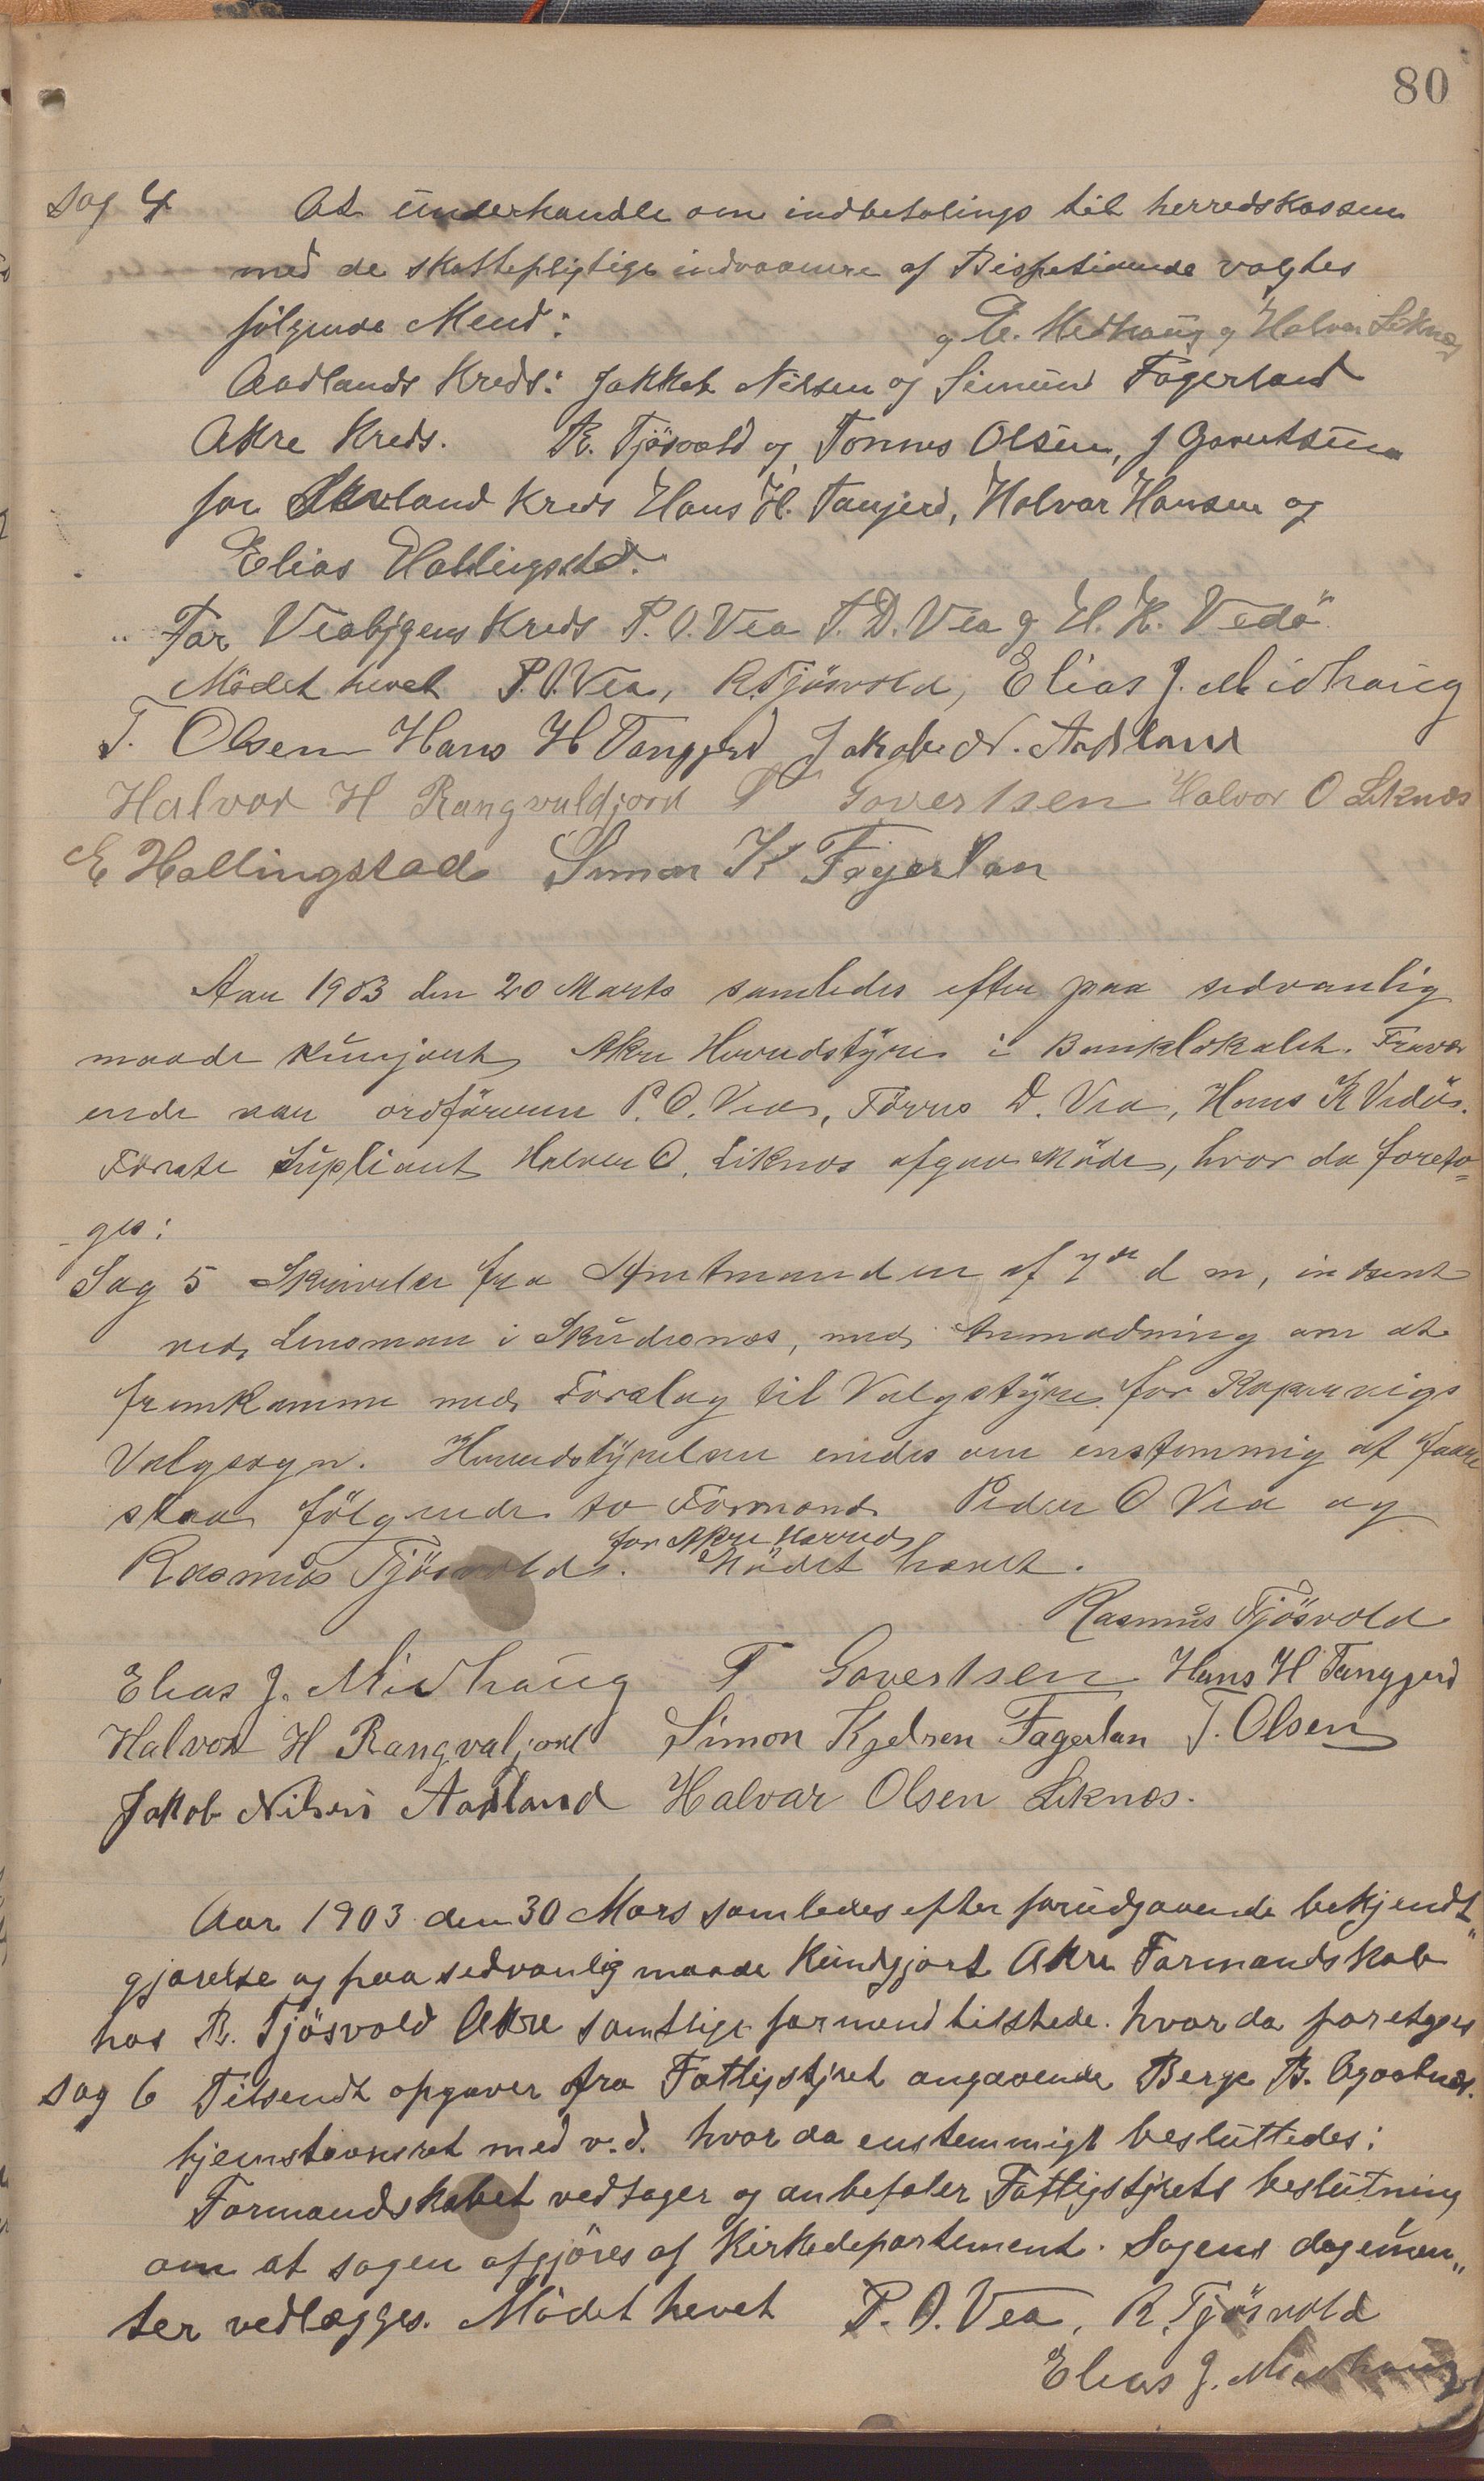 80
Sag 4 At underhandle om indbetalings til herredskassen
med de skattepligtige indvaanere af valgtes
følgende Mend: og E. Medhaug og Halvor Liknes
Aadlands Kreds: Jakkob Nilsen og Simun Fagerland
Akre Kreds. R. Tjösvold og Tonnes Olsen, J Govertsen
for Kreds Hans H. Tangjerd, Halvor Hansen og
Elias Hallingstd.
" For Veabygens Kreds P. O. Vea T. D. Vea og H. K. Vedö
Mödet hevet P. O. Vea, R. Tjösvold, Elias J. Midhaug
T. Olsen Hans H Tangjerd Jakob N. Aadland
Halvor H Rangvaldjord T Govertsen Halvor O Liknes
E Hallingstad Simon K Fagerlan
Aar 1903 den 20 Marts samledes efter paa sedvanlig
maade kunjort Akre Herredstyre i Banklokalet. Fravær
ende var ordföreren P. O. Vea, Törres D. Vea, Hans K Vedö.
Förste Supliant Halvor O. Liknes afgav Möde, hvor da foreto=
-ges:
Sag 5 Skrivelse fra Amtmanden af 7de d m, indsent
ved Lensman i Skudesnes, med Anmodning om at
fremkomme med Forslag til Valgstyre for Kopervigs
Valgsogn. Herredstyrelsen enedes om enstemmig at foare
slaa fölgende to Formend Peder O Vea og
for Akre Herred
Rasmus Tjösvold. Mödet hevet.
Rasmus Tjösvold
Elias J. Midhaug T Govertsen Hans H Tangjerd
Halvor H Rangvaljord Simon Kjelsen Fagerlan T. Olsen
Jakob Nilsen Aadland Halvar Olsen Liknes.
Aar 1903 den 30 Mars samledes efter forudgaaende bekjendt"
gjørelse og paa sedvanlig maade kundgjort Akre Formandskab
hos R. Tjösvold Akre samtlige formend tilstede. hvor da foretoges
Sag 6 Tilsendt opgaver fra Fattigstyret angaaende Berge B.
hjemstavnsret med v. d. hvor da enstemmigt besluttedes:
Formandskabet vedtager og anbefaler Fattigstyrets beslutning
om at sagen afgjöres af Kirkedepartement. Sagens dogumen"
ter vedlægges. Mödet hevet P. O. Vea, R. Tjösvold
Elias J. Midhaug